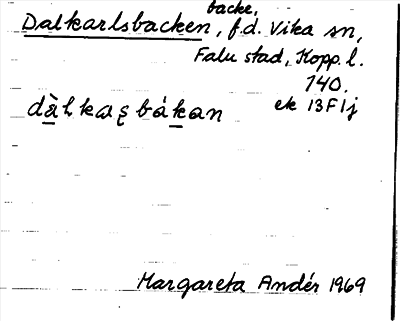 backe,
Dalkarlsbacken, f.d. Vika sn,
Falu stad, Kopp. l.
140.
ek 13F1j
dàɫkaʂbákan
Margareta Andér 1969